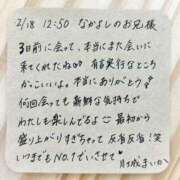 2/18 12:50 なかよしのお兄様
3日前に会って、本当にまた会いに
来てくれたね 有言実行なところ
かっこいいよ。本当にありがとう
何回会っても新鮮な気持ちで
わたしも楽しんでるよ 最初から
盛り上がりすぎちゃって反省反省!笑
いつまでもNo.1でいさせて